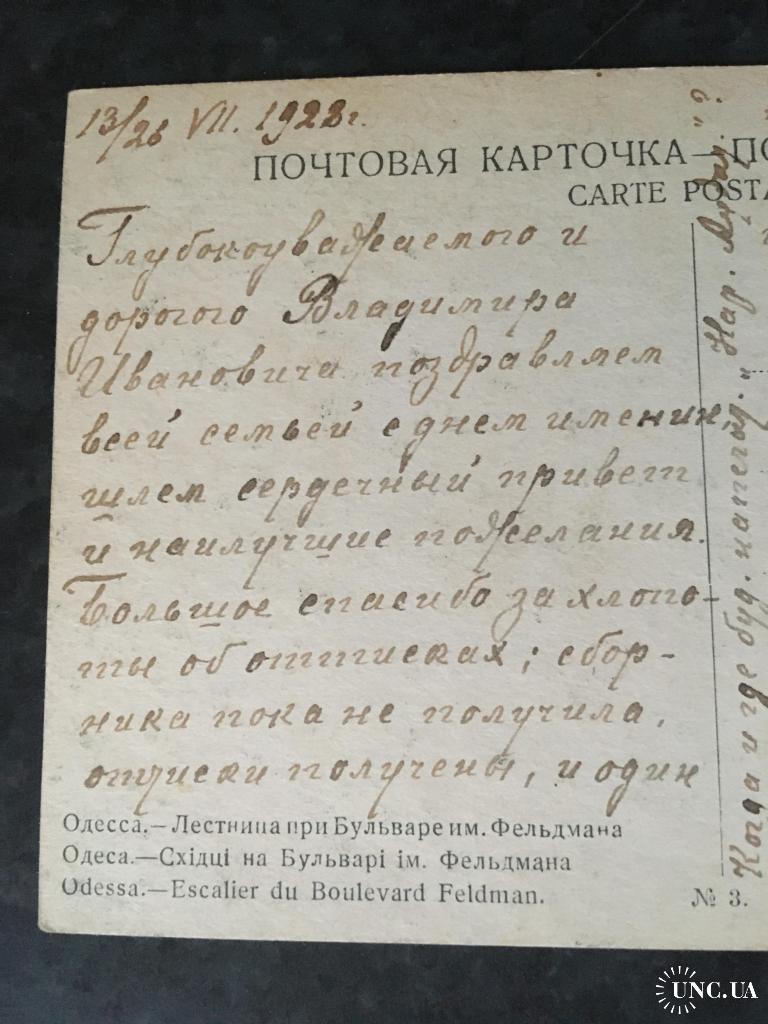 13/26 VII. 1928г.
ПОЧТОВАЯ КАРТОЧКА — ПО
CARTE POSTA
Глубокоуважаемого и
дорогого Владимира
Ивановича поздравляем
всей семьей с днем именин,
шлем сердечный привет
и наилучшие пожелания.
Большое спасибо за хлопо-
ты об оттисках; сбор-
ника пока не получила,
оттиски получены, и один
Когда и где буд. напечат. „Нар.
Одесса.—Лестница при Бульваре им. Фельдмана
Одеса.—Східці на Бульварі ім. Фельдмана
Odessa.—Escalier du Boulevard Feldman.
№ 3.
UNC.UA